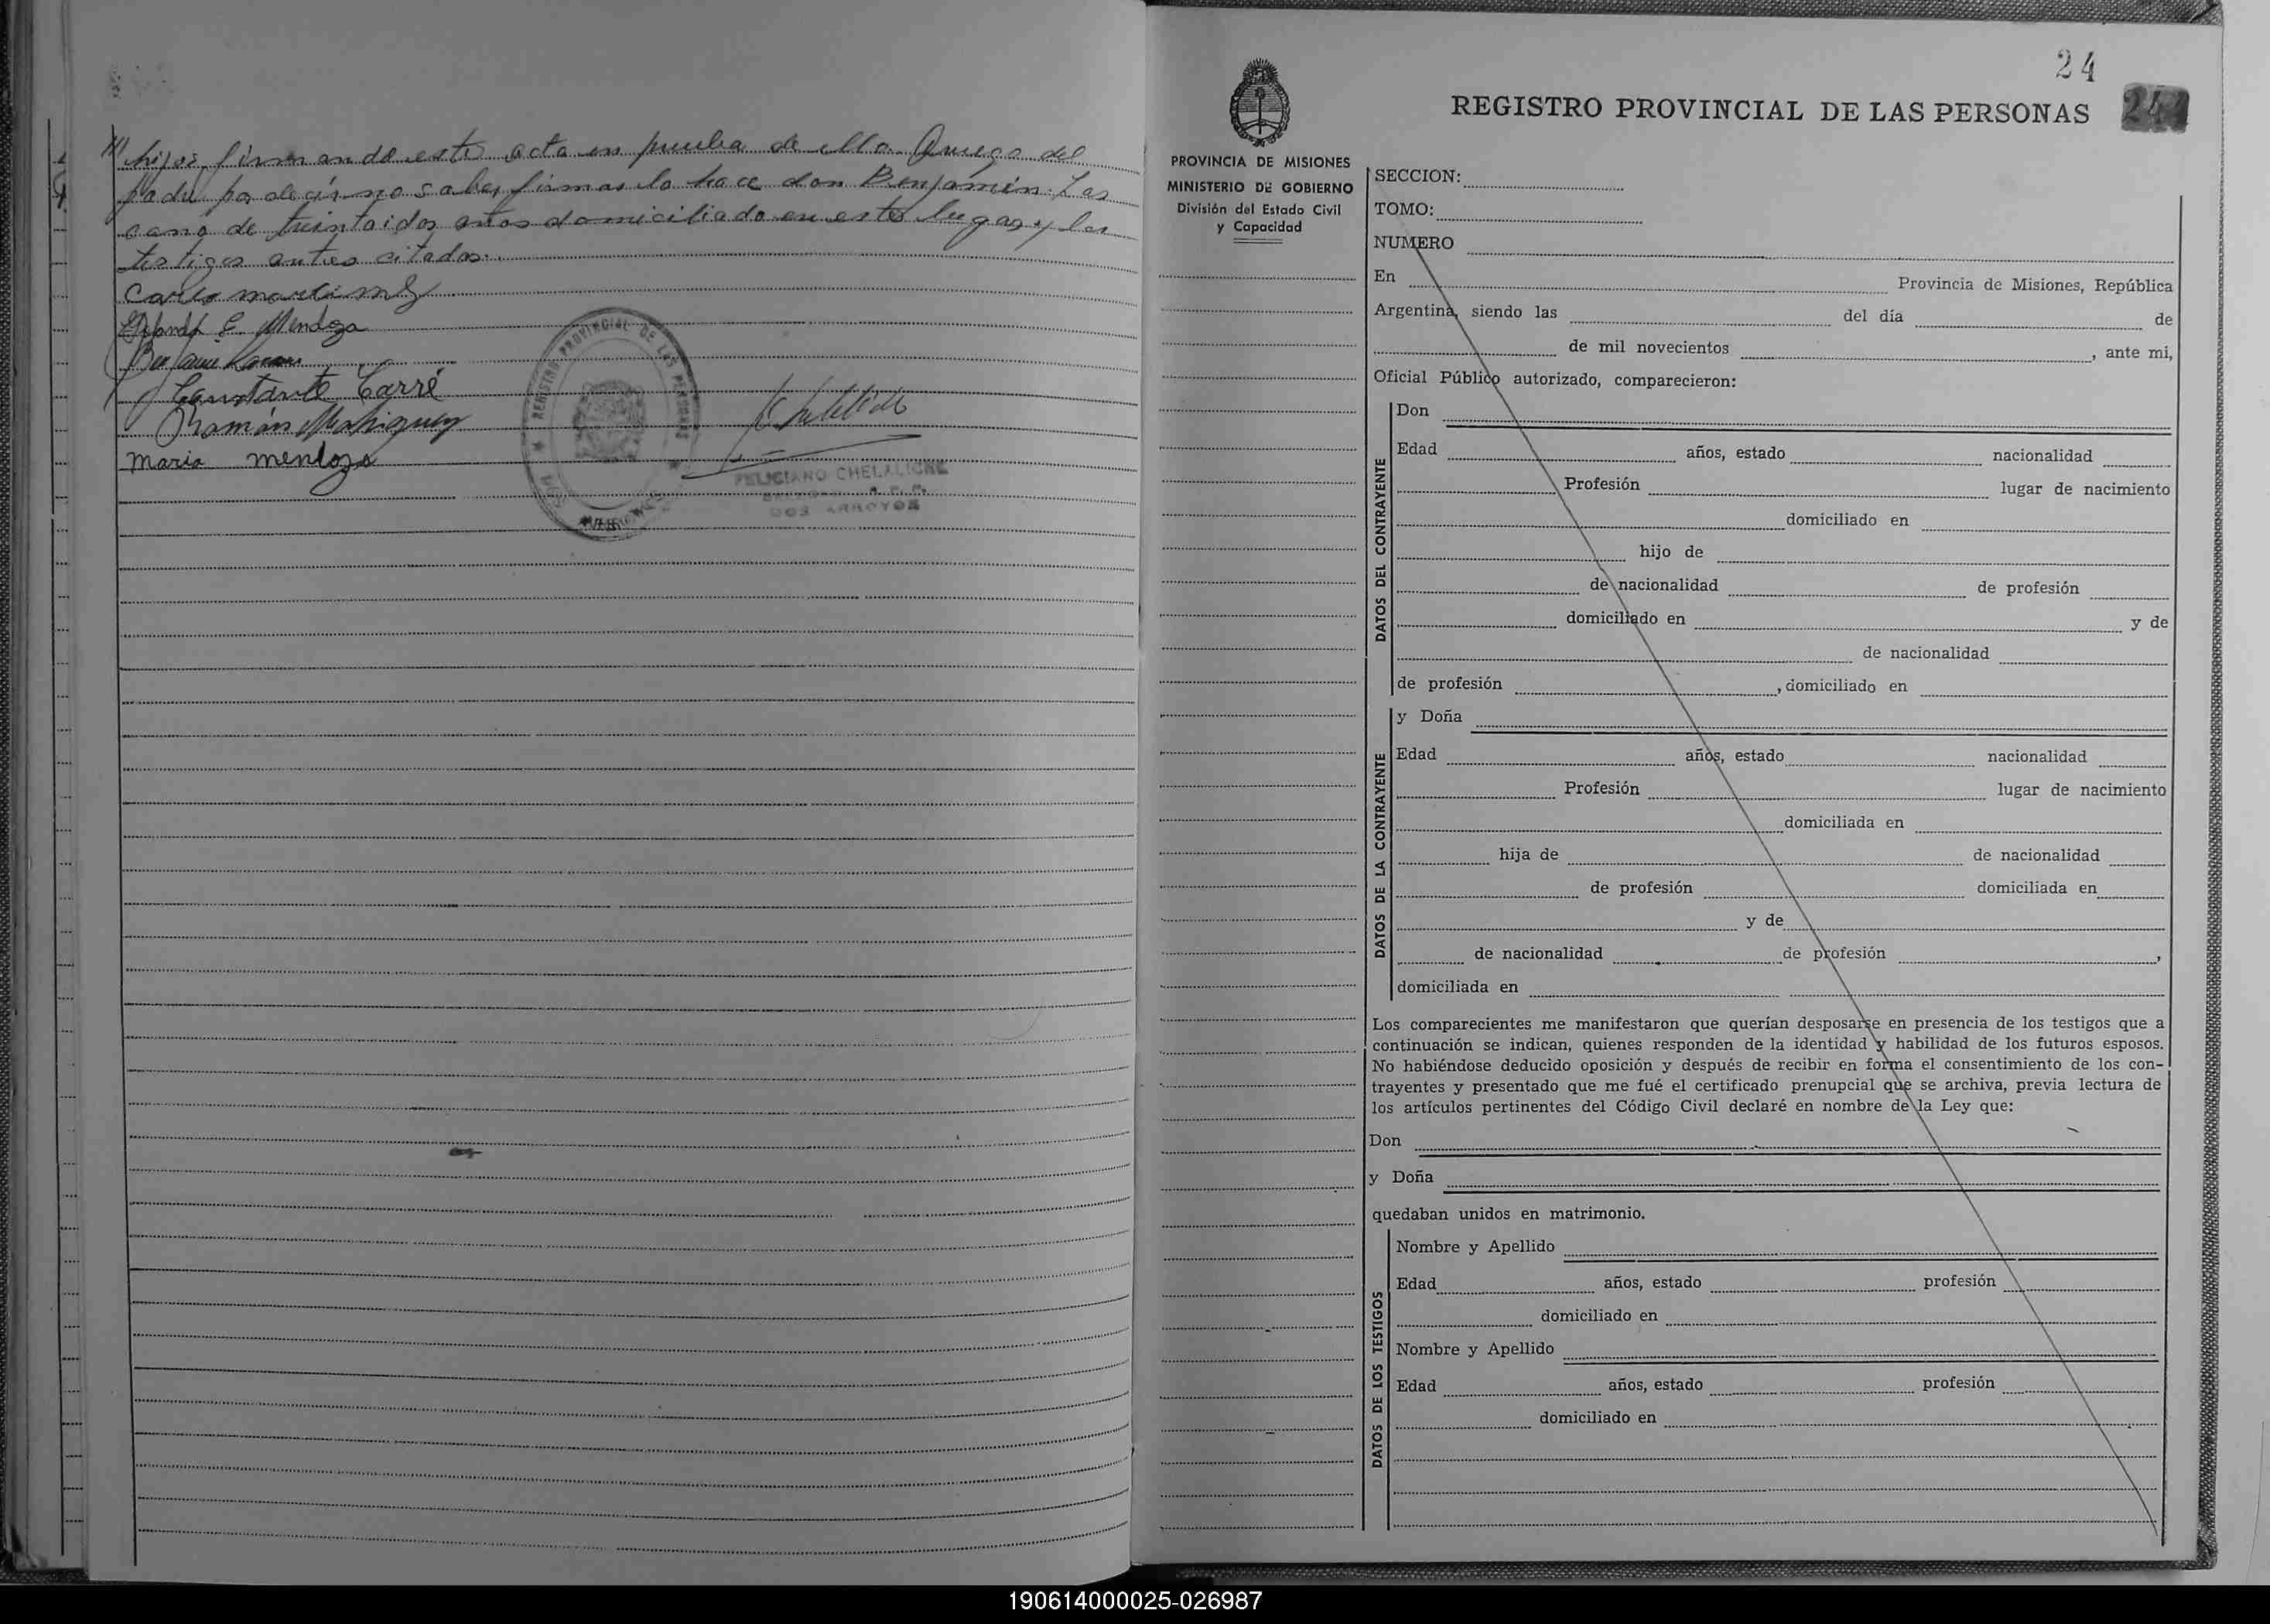 hijos, firmando este acta en prueba de ello. A ruego del
padre por decir no saber firmar lo hace don Benjamin Las
cano de treintaidos años domiciliado en este lugar y los
testigos antes citados.
Carlos martinez
E. Mendoza
Constante Carré
Román
maria mendoza
REGISTRO PROVINCIAL DE LAS PERSONAS
FELICIANO CHELALICHE
DOS ARROYOS
24
REGISTRO PROVINCIAL DE LAS PERSONAS
244
PROVINCIA DE MISIONES
MINISTERIO DE GOBIERNO
División del Estado Civil
y Capacidad
SECCION:
TOMO:
NUMERO
En Provincia de Misiones, República
Argentina, siendo las del día de
de mil novecientos , ante mi,
Oficial Público autorizado, comparecieron:
DATOS DEL CONTRAYENTE
Don
Edad años, estado nacionalidad
Profesión lugar de nacimiento
domiciliado en
hijo de
de nacionalidad de profesión
domiciliado en y de
de nacionalidad
de profesión , domiciliado en
DATOS DE LA CONTRAYENTE
y Doña
Edad años, estado nacionalidad
Profesión lugar de nacimiento
domiciliada en
hija de de nacionalidad
de profesión domiciliada en
y de
de nacionalidad de profesión ,
domiciliada en
Los comparecientes me manifestaron que querían desposarse en presencia de los testigos que a
continuación se indican, quienes responden de la identidad y habilidad de los futuros esposos.
No habiéndose deducido oposición y después de recibir en forma el consentimiento de los con-
trayentes y presentado que me fué el certificado prenupcial que se archiva, previa lectura de
los artículos pertinentes del Código Civil declaré en nombre de la Ley que:
Don
y Doña
quedaban unidos en matrimonio.
DATOS DE LOS TESTIGOS
Nombre y Apellido
Edad años, estado profesión
domiciliado en
Nombre y Apellido
Edad años, estado profesión
domiciliado en
190614000025-026987